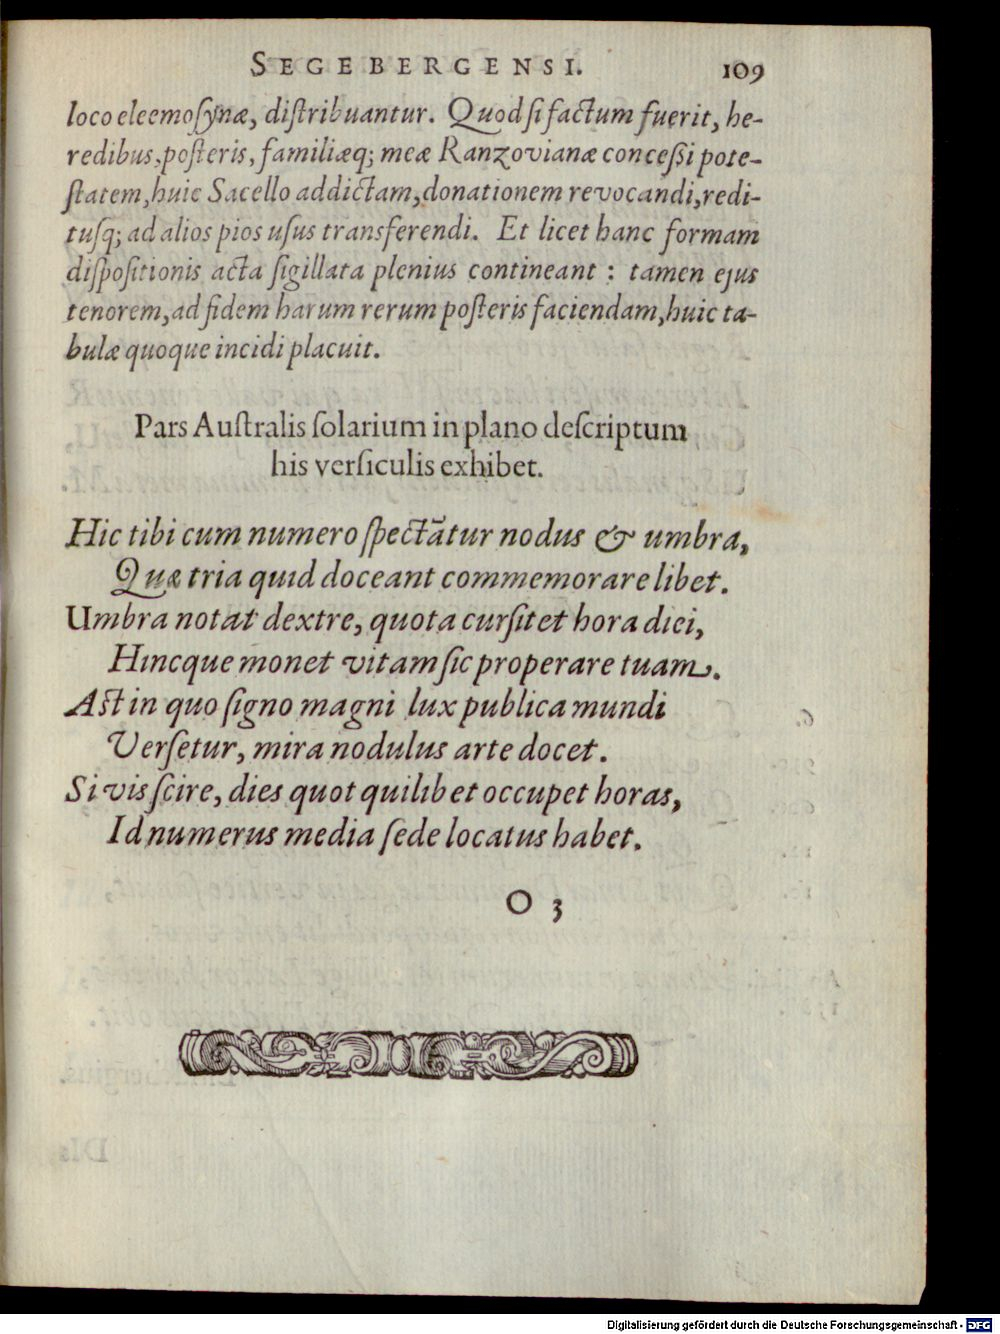 SEGEBERGENSI. 109
loco eleemoſynæ, diſtribuantur. Quod ſi factum fuerit, he-
redibus, poſteris, familiæq; meæ Ranzovianæ conceſſi pote-
ſtatem, huic Sacello addictam, donationem revocandi, redi-
tuſq; ad alios pios uſus transferendi. Et licet hanc formam
diſpoſitionis acta ſigillata plenius contineant : tamen ejus
tenorem, ad fidem harum rerum poſteris faciendam, huic ta-
bulæ quoque incidi placuit.
Pars Auſtralis ſolarium in plano deſcriptum
his verſiculis exhibet.
Hic tibi cum numero ſpectātur nodus & umbra,
Quæ tria quid doceant commemorare libet.
Umbra notat dextre, quota curſitet hora diei,
Hincque monet vitam ſic properare tuam.
Aſt in quo ſigno magni lux publica mundi
Verſetur, mira nodulus arte docet.
Si vis ſcire, dies quot quilibet occupet horas,
Id numerus media ſede locatus habet.
O 3
Digitalisierung gefördert durch die Deutsche Forschungsgemeinschaft - DFG